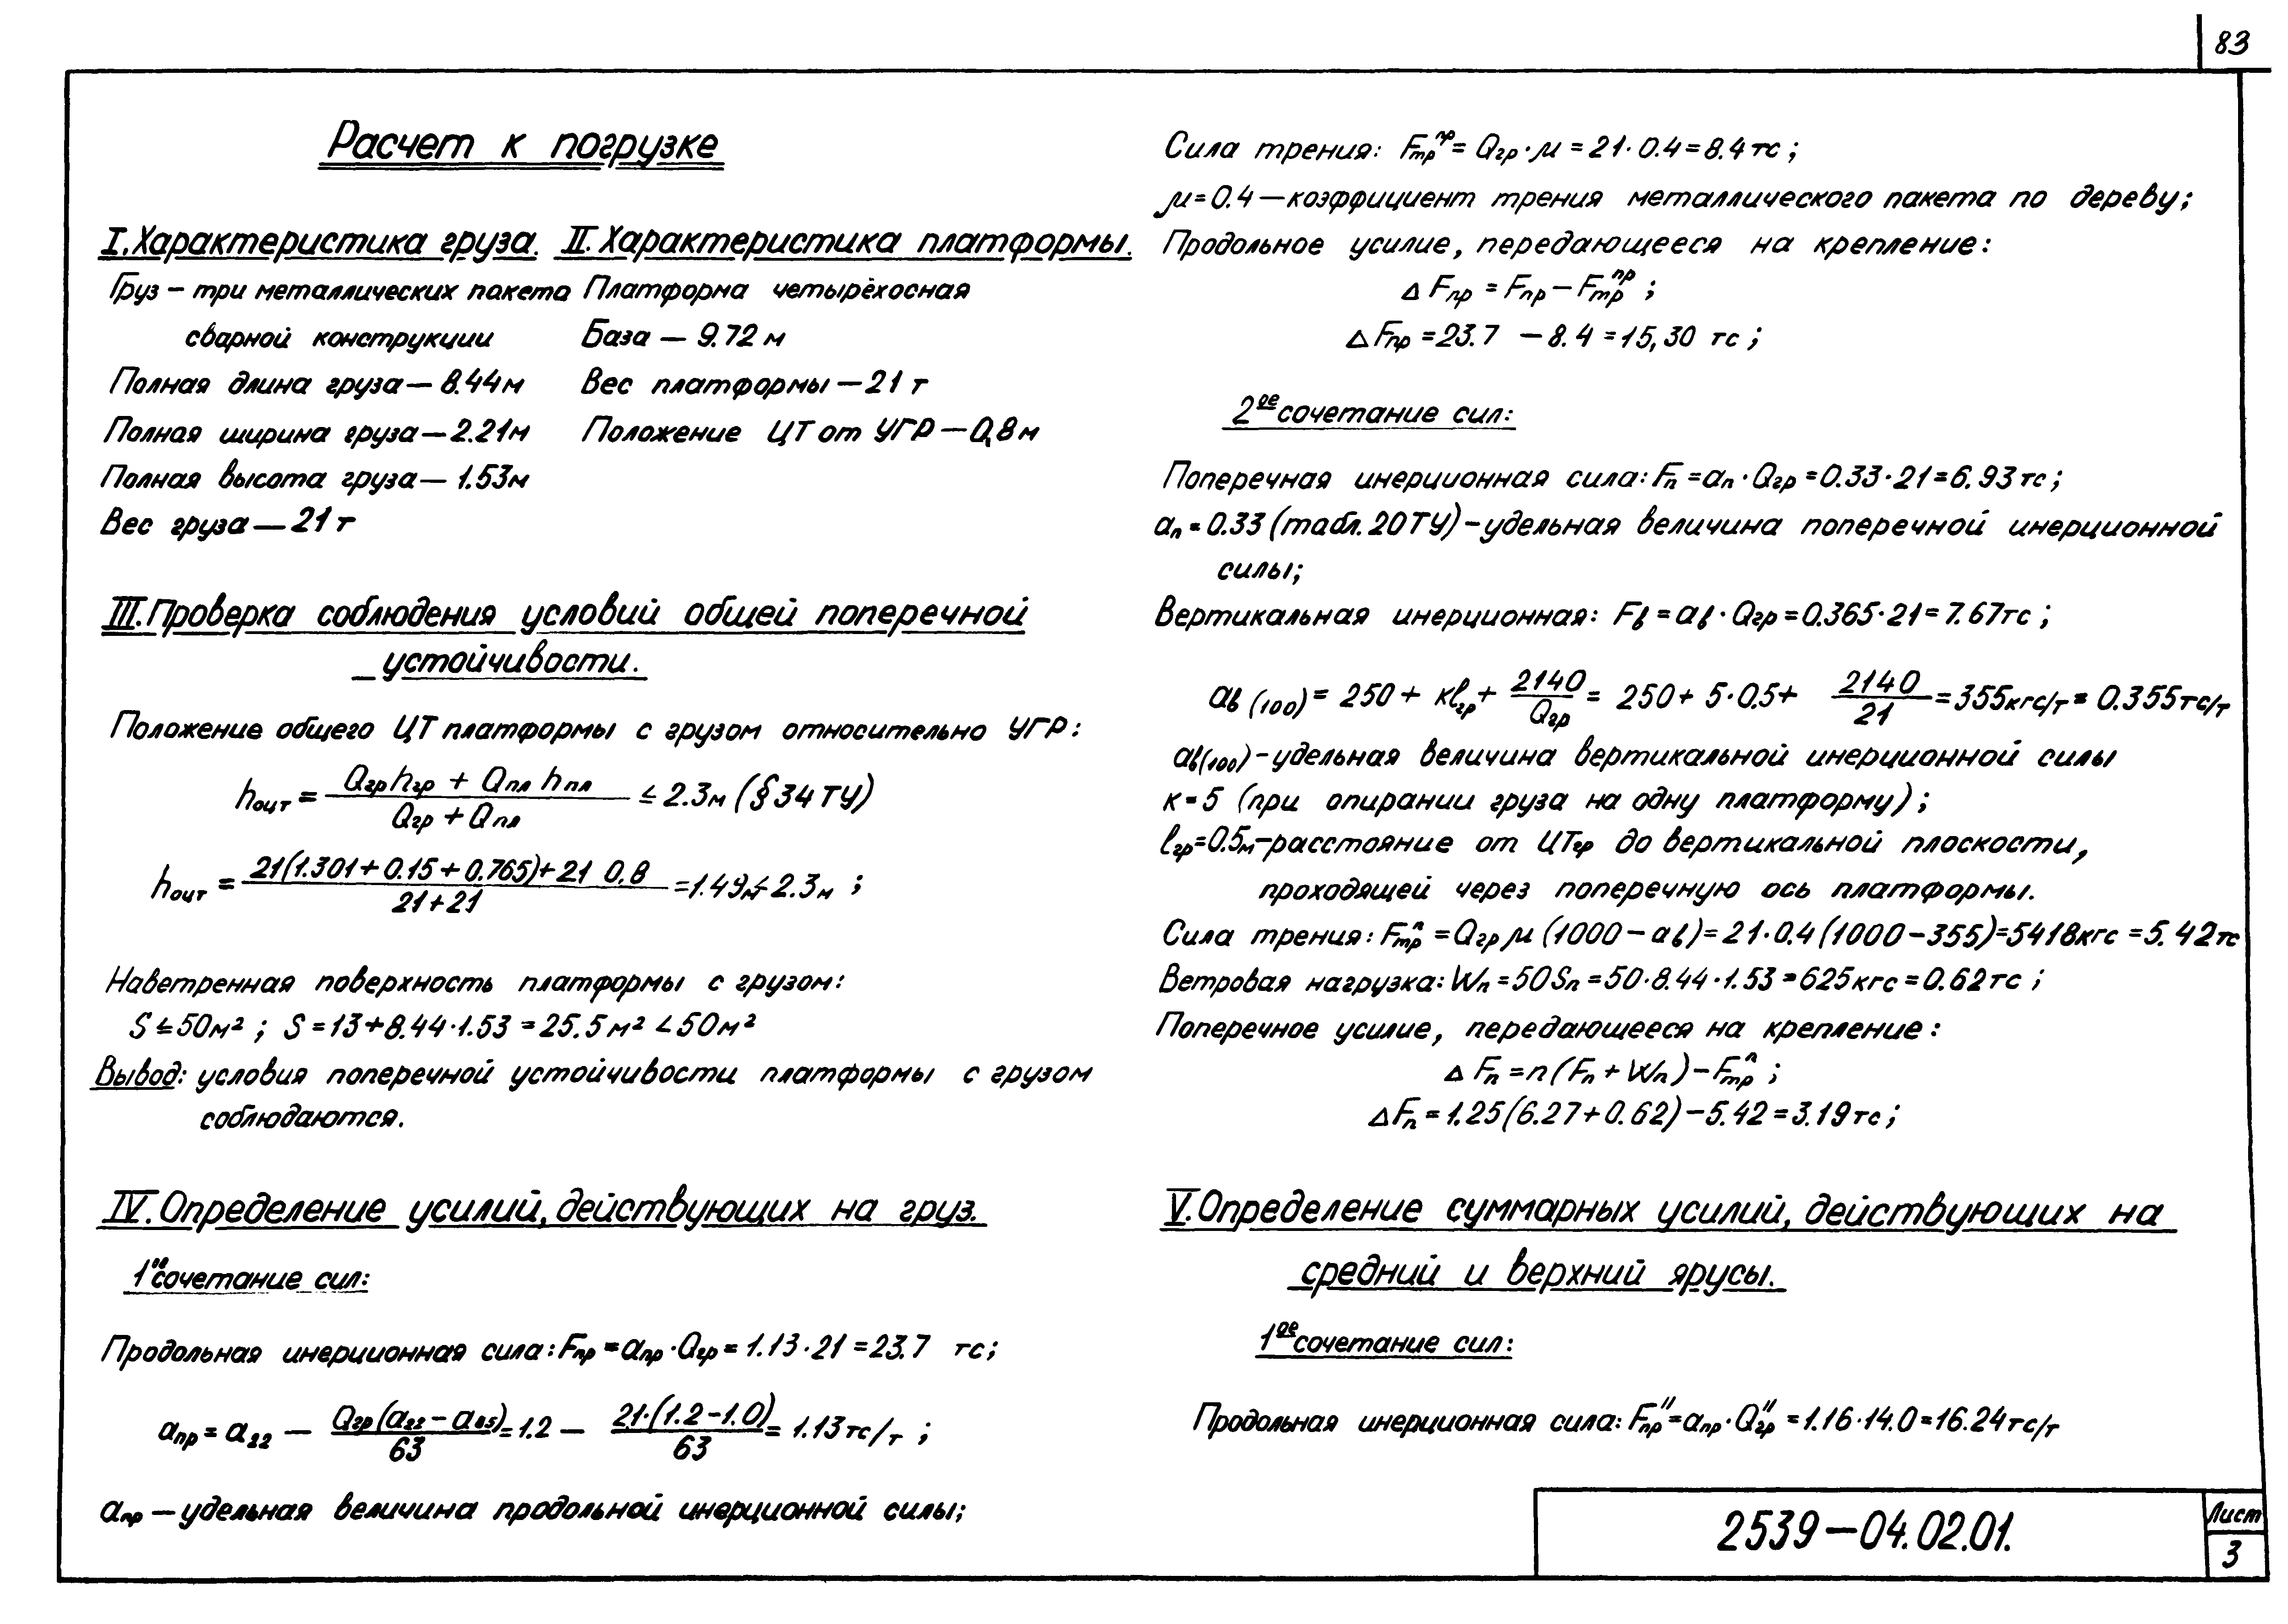 83
Расчет к погрузке
I. Характеристика груза.
Груз – три металлических пакета
сварной конструкции
Полная длина груза — 8.44м
Полная ширина груза — 2.21м
Полная высота груза — 1.53м
Вес груза — 21 т
II. Характеристика платформы.
Платформа четырёхосная
База — 9.72 м
Вес платформы — 21 т
Положение ЦТ от УГР — 0,8 м
III. Проверка соблюдения условий общей поперечной
устойчивости.
Положение общего ЦТ платформы с грузом относительно УГР:
hоцт = (Qгр hгр + Qпл hпл) / (Qгр + Qпл) ≤ 2.3м (§ 34 ТУ)
hоцт = (21(1.301 + 0.15 + 0.765) + 21 0.8) / (21 + 21) = 1.49м < 2.3м ;
Наветренная поверхность платформы с грузом:
S ≤ 50м² ; S = 13 + 8.44 · 1.53 = 25.5 м² < 50м²
Вывод: условия поперечной устойчивости платформы с грузом
соблюдаются.
IV. Определение усилий, действующих на груз.
1ое сочетание сил:
Продольная инерционная сила: Fпр = aпр · Qгр = 1.13 · 21 = 23.7 тс;
aпр = a22 — Qгр (a22 – a85) / 63 = 1.2 — 21·(1.2 – 1.0) / 63 = 1.13 тс/т ;
aпр — удельная величина продольной инерционной силы;
Сила трения: Fтр^пр = Qгр · μ = 21 · 0.4 = 8.4 тс ;
μ = 0.4 — коэффициент трения металлического пакета по дереву;
Продольное усилие, передающееся на крепление:
Δ Fпр = Fпр – Fтр^пр ;
Δ Fпр = 23.7 – 8.4 = 15,30 тс ;
2ое сочетание сил:
Поперечная инерционная сила: Fп = aп · Qгр = 0.33 · 21 = 6.93 тс ;
aп = 0.33 (табл. 20 ТУ) – удельная величина поперечной инерционной
силы;
Вертикальная инерционная: Fв = aв · Qгр = 0.365 · 21 = 7.67 тс ;
aв (100) = 250 + кlгр + 2140 / Qгр = 250 + 5 · 0.5 + 2140 / 21 = 355 кгс/т = 0.355 тс/т
aв(100) – удельная величина вертикальной инерционной силы
к = 5 (при опирании груза на одну платформу) ;
lгр = 0.5м – расстояние от ЦТгр до вертикальной плоскости,
проходящей через поперечную ось платформы.
Сила трения: Fтр^п = Qгр μ (1000 – aв) = 21 · 0.4 (1000 – 355) = 5418 кгс = 5.42 тс
Ветровая нагрузка: Wп = 50Sп = 50 · 8.44 · 1.53 = 625 кгс = 0.62 тс ;
Поперечное усилие, передающееся на крепление :
Δ Fп = n (Fп + Wп) – Fтр^п ;
Δ Fп = 1.25 (6.27 + 0.62) – 5.42 = 3.19 тс ;
V. Определение суммарных усилий, действующих на
средний и верхний ярусы.
1ое сочетание сил:
Продольная инерционная сила: Fпр" = aпр · Qгр" = 1.16 · 14.0 = 16.24 тс/т
2539 – 04.02.01.
Лист
3